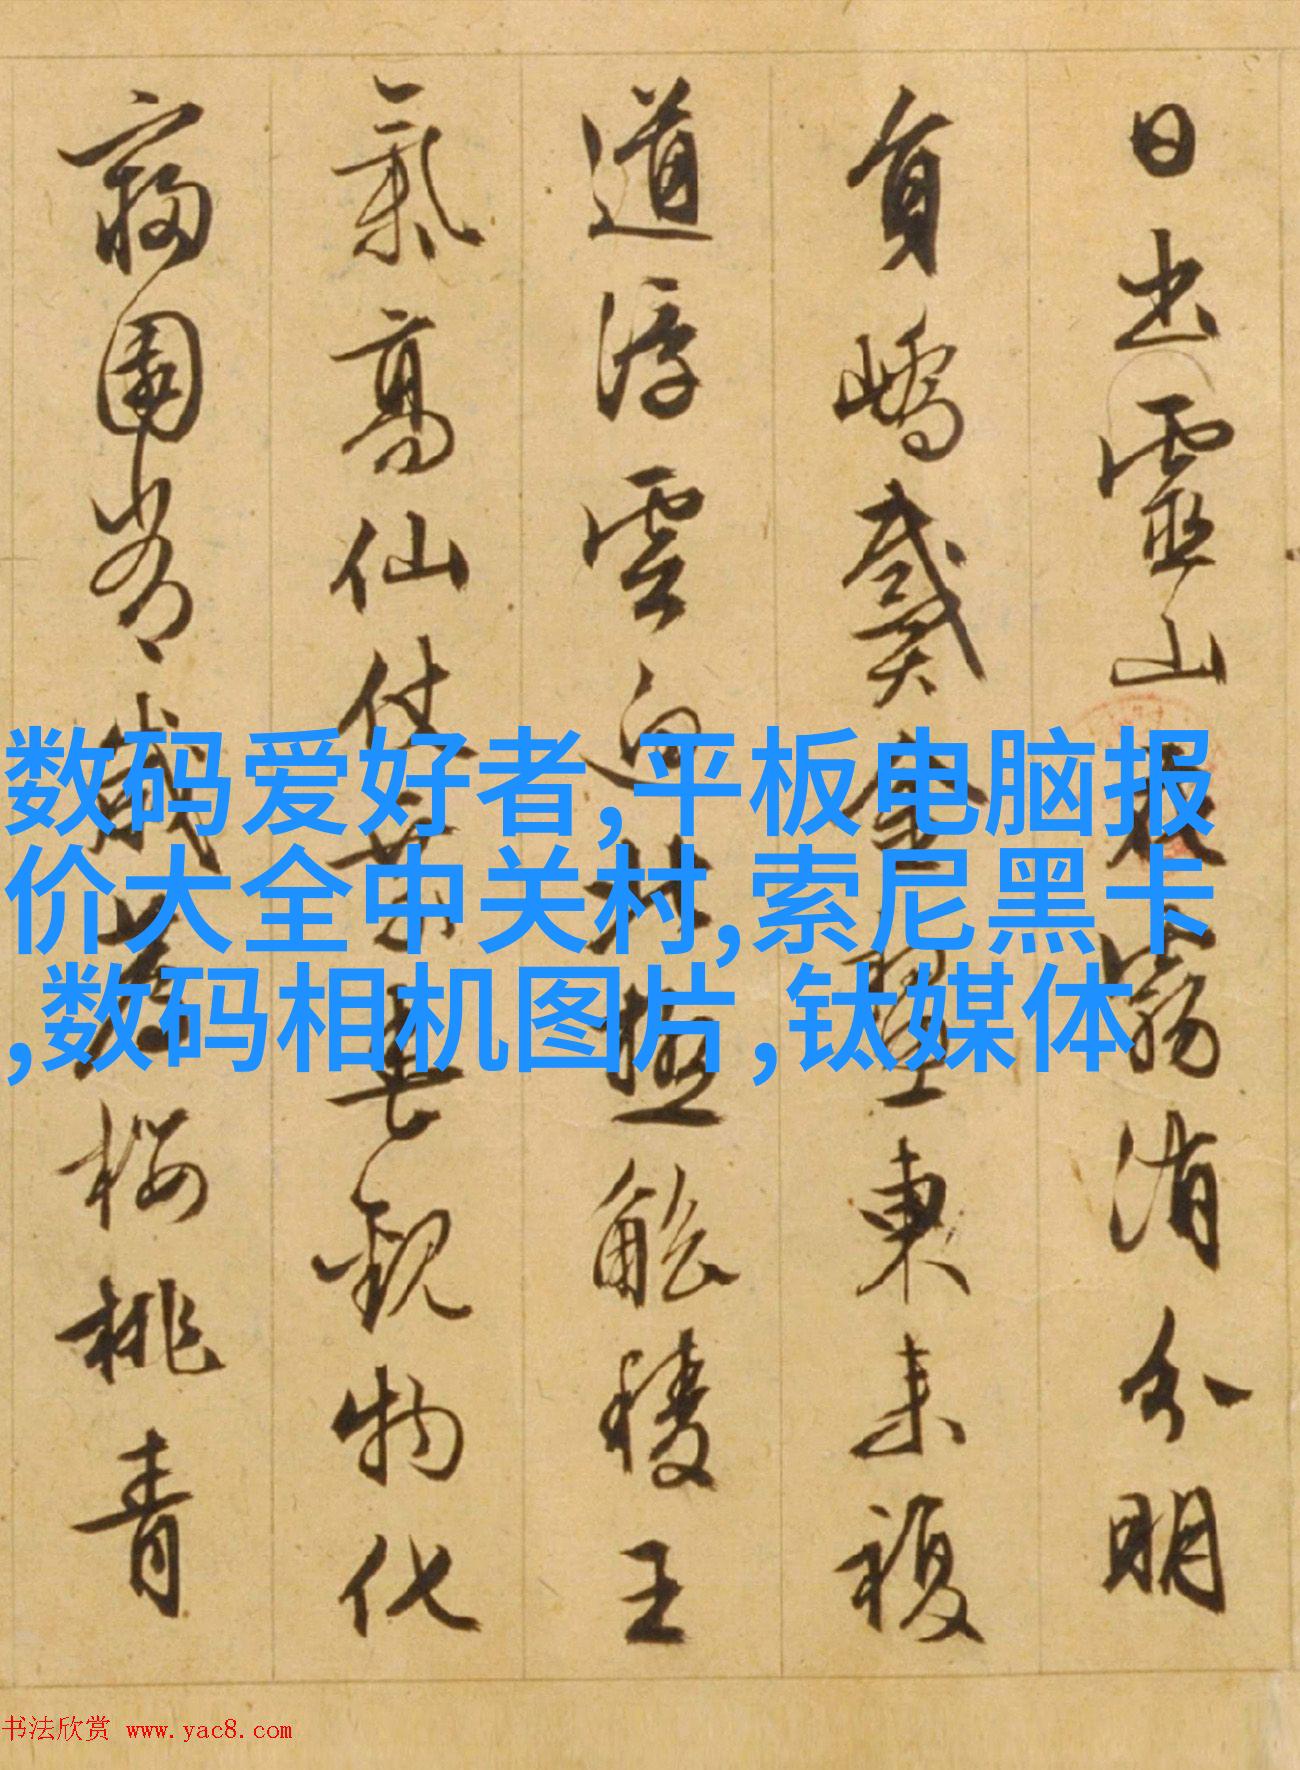 日出靈山分明
負嶠戴金東來複
道浮雲白拱極觚稜王
氣高仙仗觀物化
園櫻桃青
数码爱好者,平板电脑报
价大全中关村,索尼黑卡
,数码相机图片,钛媒体
书法欣赏 www.yac8.com